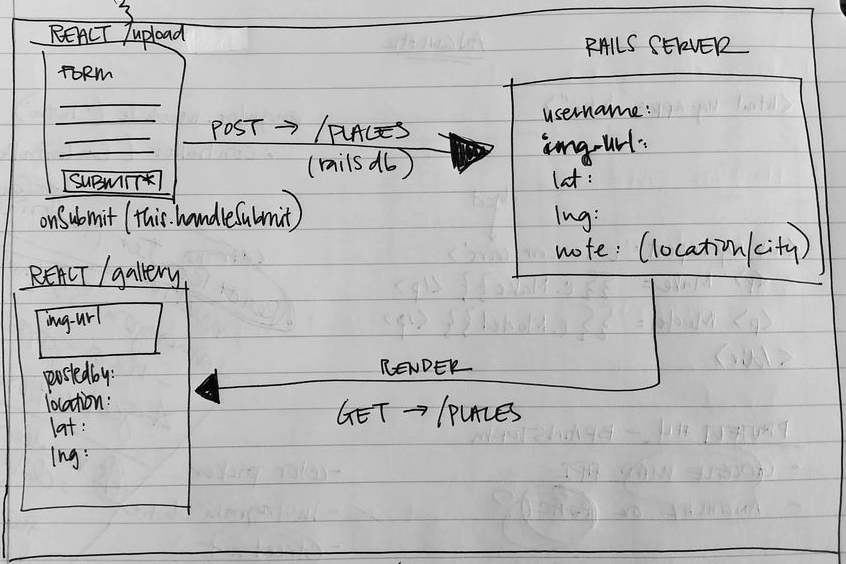 REACT /upload
FORM
SUBMIT*
onSubmit (this.handleSubmit)
POST → /PLACES
(rails db)
RAILS SERVER
username:
img-url:
lat:
lng:
note: (location/city)
REACT /gallery
img-url
postedby:
location:
lat:
lng:
RENDER
GET → /PLACES